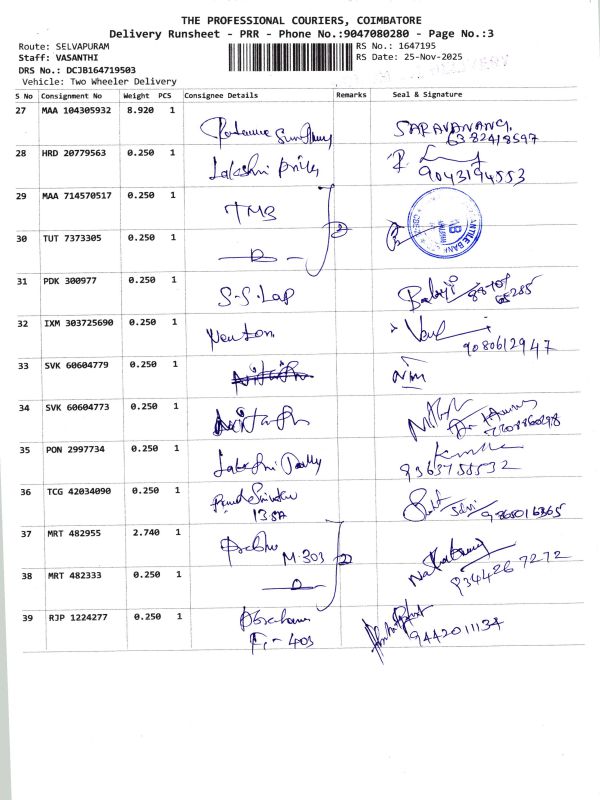 THE PROFESSIONAL COURIERS, COIMBATORE
Delivery Runsheet - PRR - Phone No.:9047080280 - Page No.:3
Route: SELVAPURAM
RS No.: 1647195
Staff: VASANTHI
RS Date: 25-Nov-2025
DRS No.: DCJB164719503
Vehicle: Two Wheeler Delivery
S No Consignment No Weight PCS Consignee Details Remarks Seal & Signature
27 MAA 104305932 8.920 1 SARAVANAN
6382418597
28 HRD 20779563 0.250 1 Lakshmi
9043194553
29 MAA 714570517 0.250 1 TMB
30 TUT 7373305 0.250 1
31 PDK 300977 0.250 1 S.S. Lap Babyji
32 IXM 303725690 0.250 1 Newton
9080612947
33 SVK 60604779 0.250 1
34 SVK 60604773 0.250 1
35 PON 2997734 0.250 1 Lakshmi
9363755532
36 TCG 42034090 0.250 1 Selvi 9865016365
37 MRT 482955 2.740 1 Prabhu
M-303 9344267272
38 MRT 482333 0.250 1
39 RJP 1224277 0.250 1
F1-403 9442011134